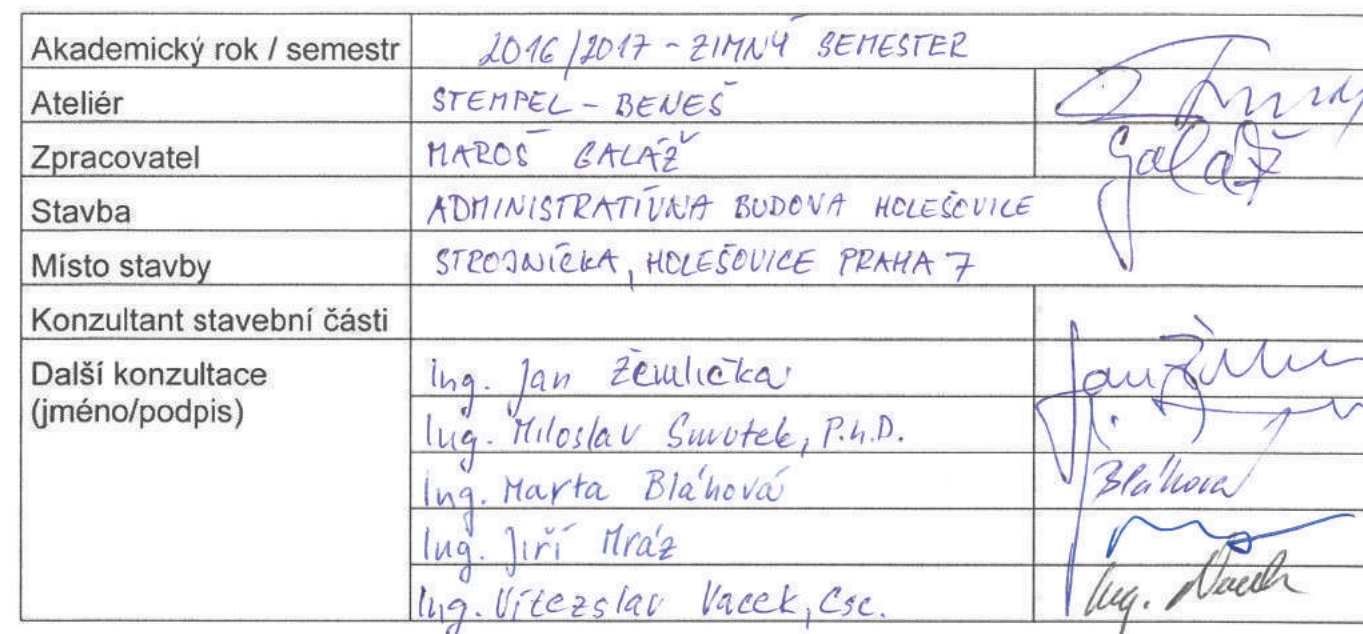 Akademický rok / semestr 2016/2017 - ZIMNÝ SEMESTER
Ateliér STEMPEL - BENEŠ
Zpracovatel MAROŠ GALÁŽ Galáž
Stavba ADMINISTRATÍVNA BUDOVA HOLEŠOVICE
Místo stavby STROJNÍCKA, HOLEŠOVICE PRAHA 7
Konzultant stavební části
Další konzultace Ing. Jan Žemlička
(jméno/podpis)
Ing. Miloslav Smutek, P.h.D.
Ing. Marta Bláhová Bláhová
Ing. Jiří Mráz
Ing. Vítezslav Vacek, Csc. Ing. Vacek